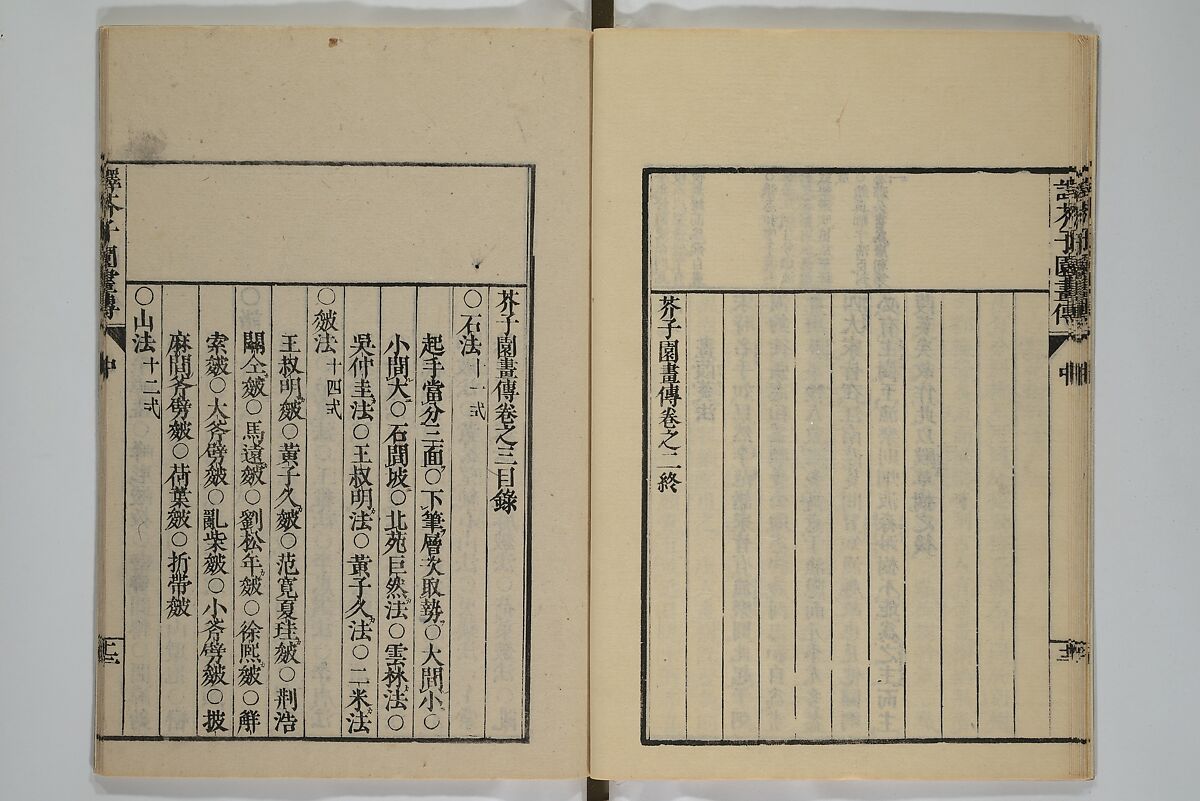 譯芥子園畫傳
中
芥子園畫傳卷之二終
芥子園畫傳卷之三目錄
○石法十一式
起手當分三面○下筆層次取勢○大間小○
小間大○石間坡○北苑巨然法○雲林法○
吳仲圭法○王叔明法○黃子久法○二米法
○皴法十四式
王叔明皴○黃子久皴○范寬夏珪皴○荆浩
關仝皴○馬遠皴○劉松年皴○徐熙皴○解
索皴○大斧劈皴○亂柴皴○小斧劈皴○披
麻間斧劈皴○荷葉皴○折帶皴
○山法十二式
譯芥子園畫傳
中